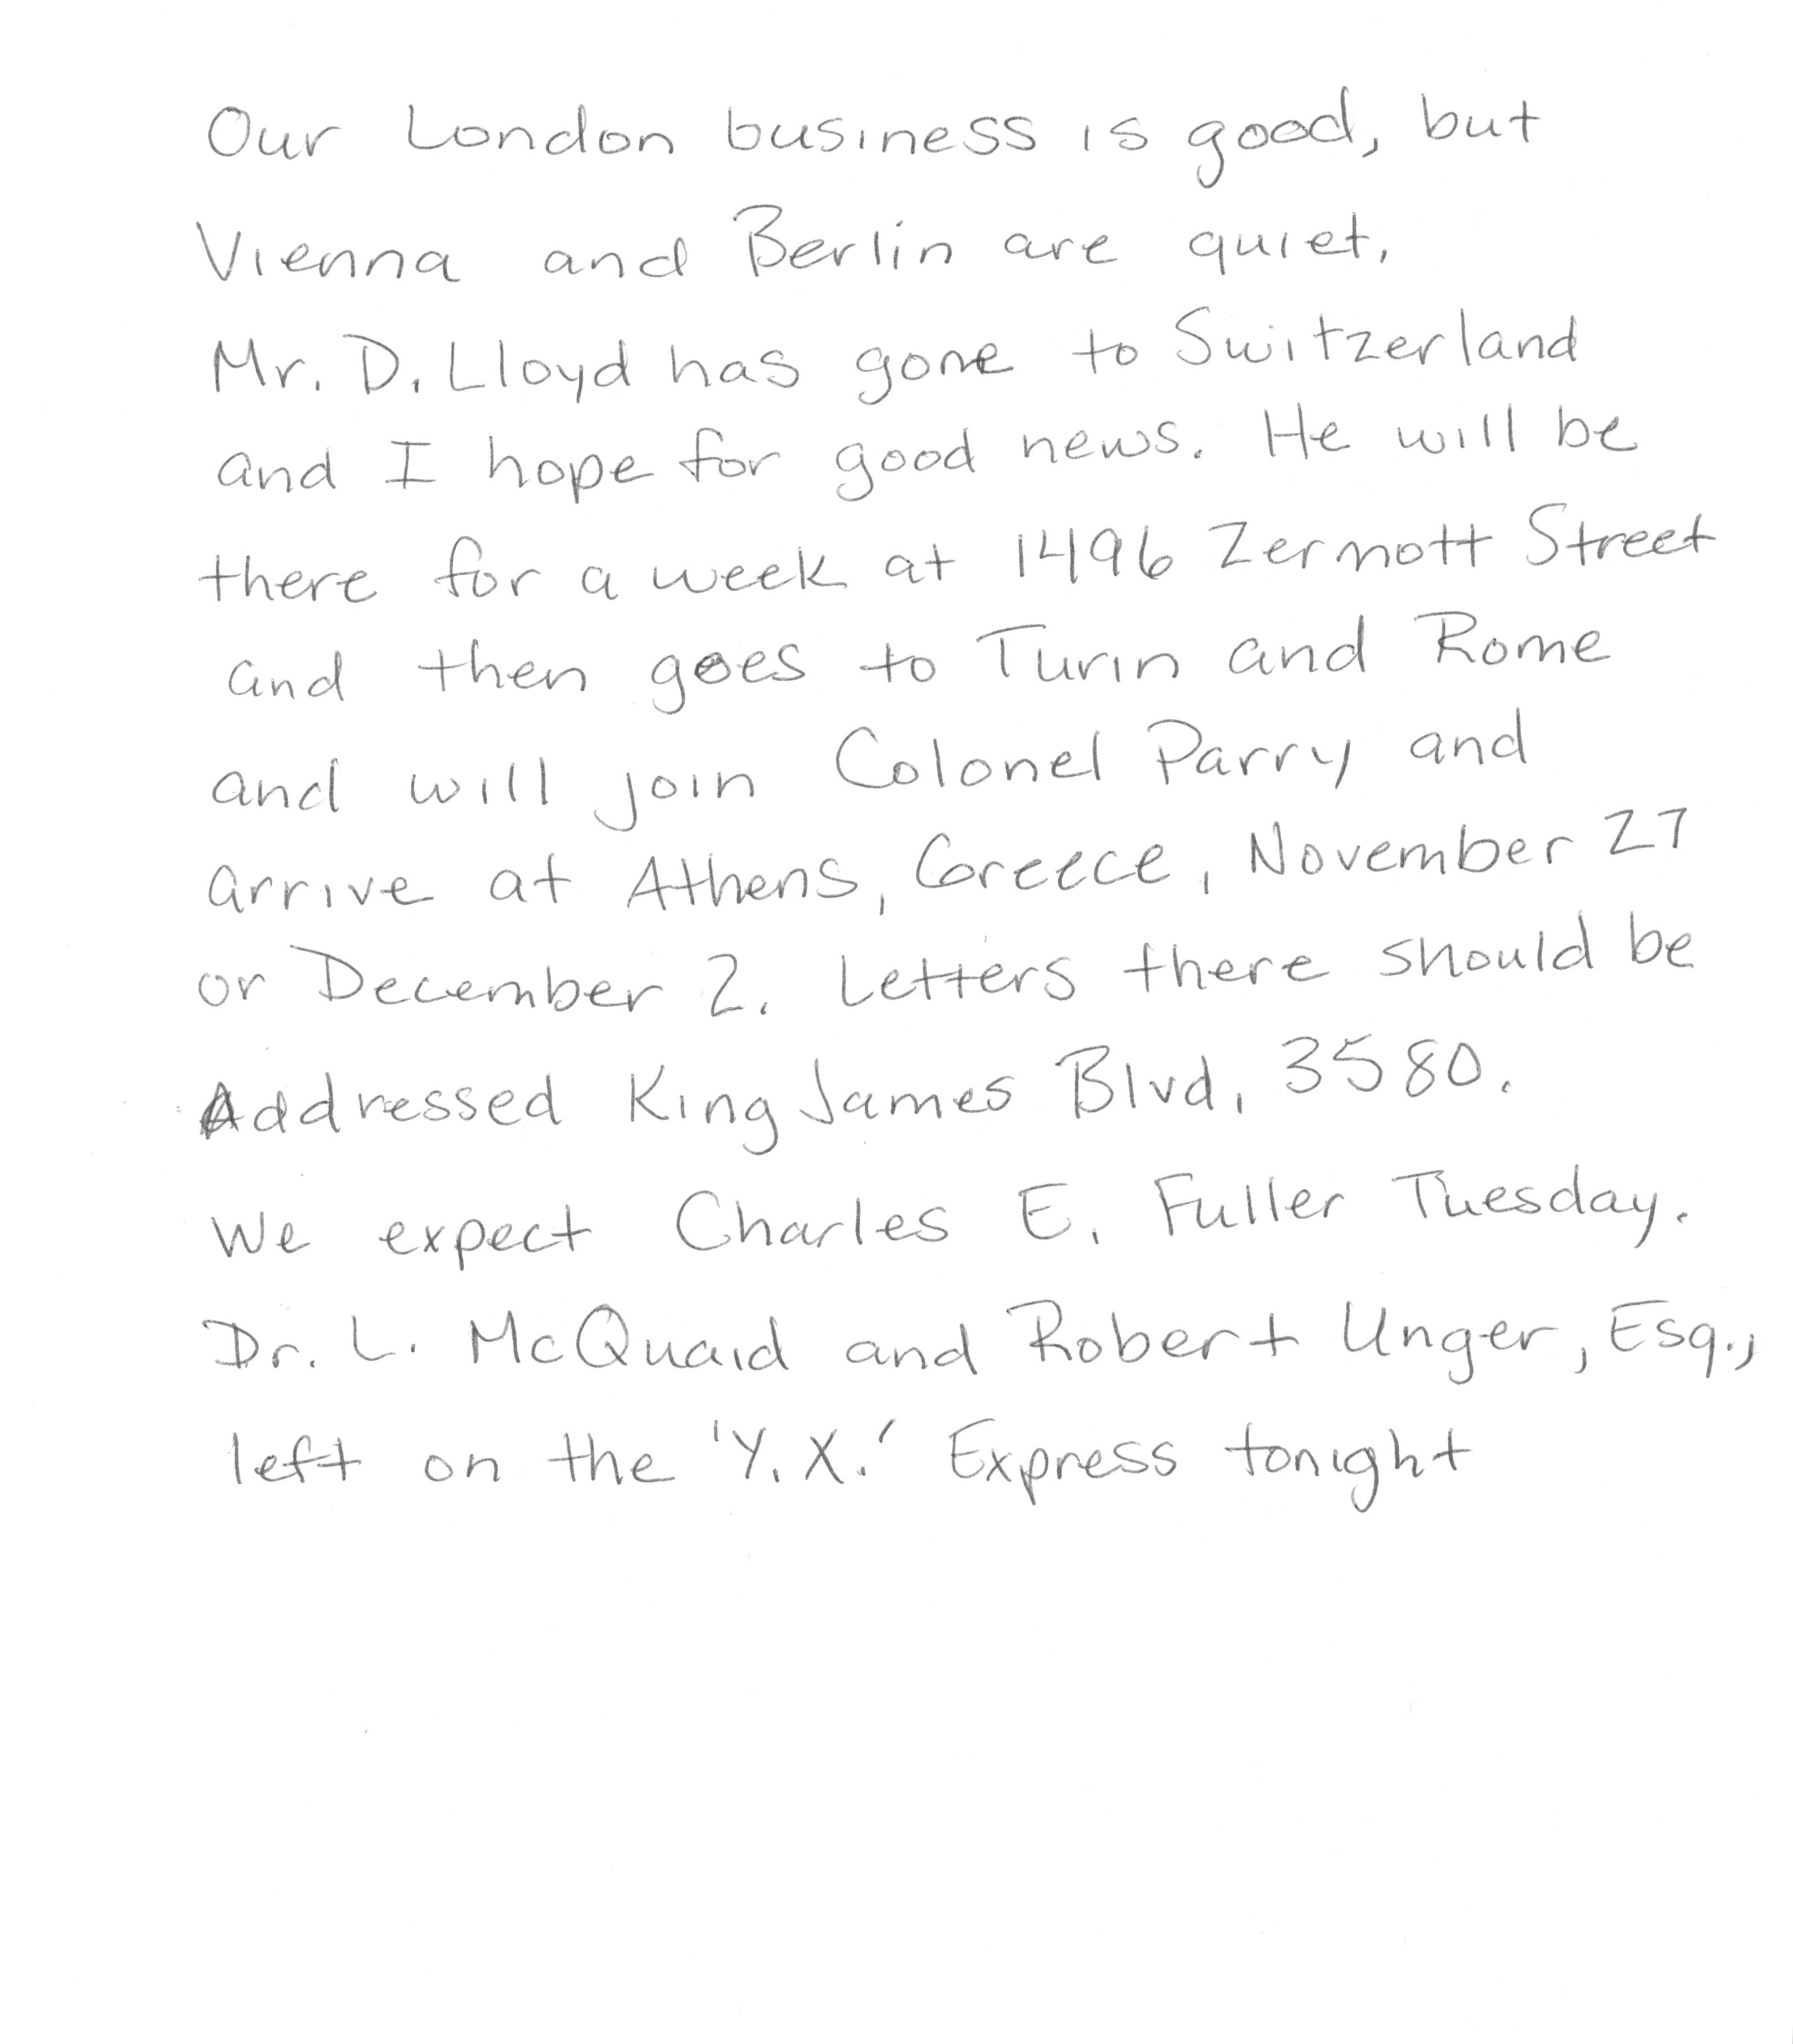 Our London business is good, but
Vienna and Berlin are quiet.
Mr. D. Lloyd has gone to Switzerland
and I hope for good news. He will be
there for a week at 1496 Zermott Street
and then goes to Turin and Rome
and will join Colonel Parry and
arrive at Athens, Greece, November 27
or December 2. Letters there should be
Addressed King James Blvd. 3580.
We expect Charles E. Fuller Tuesday.
Dr. L. McQuaid and Robert Unger, Esq.,
left on the 'Y.X.' Express tonight